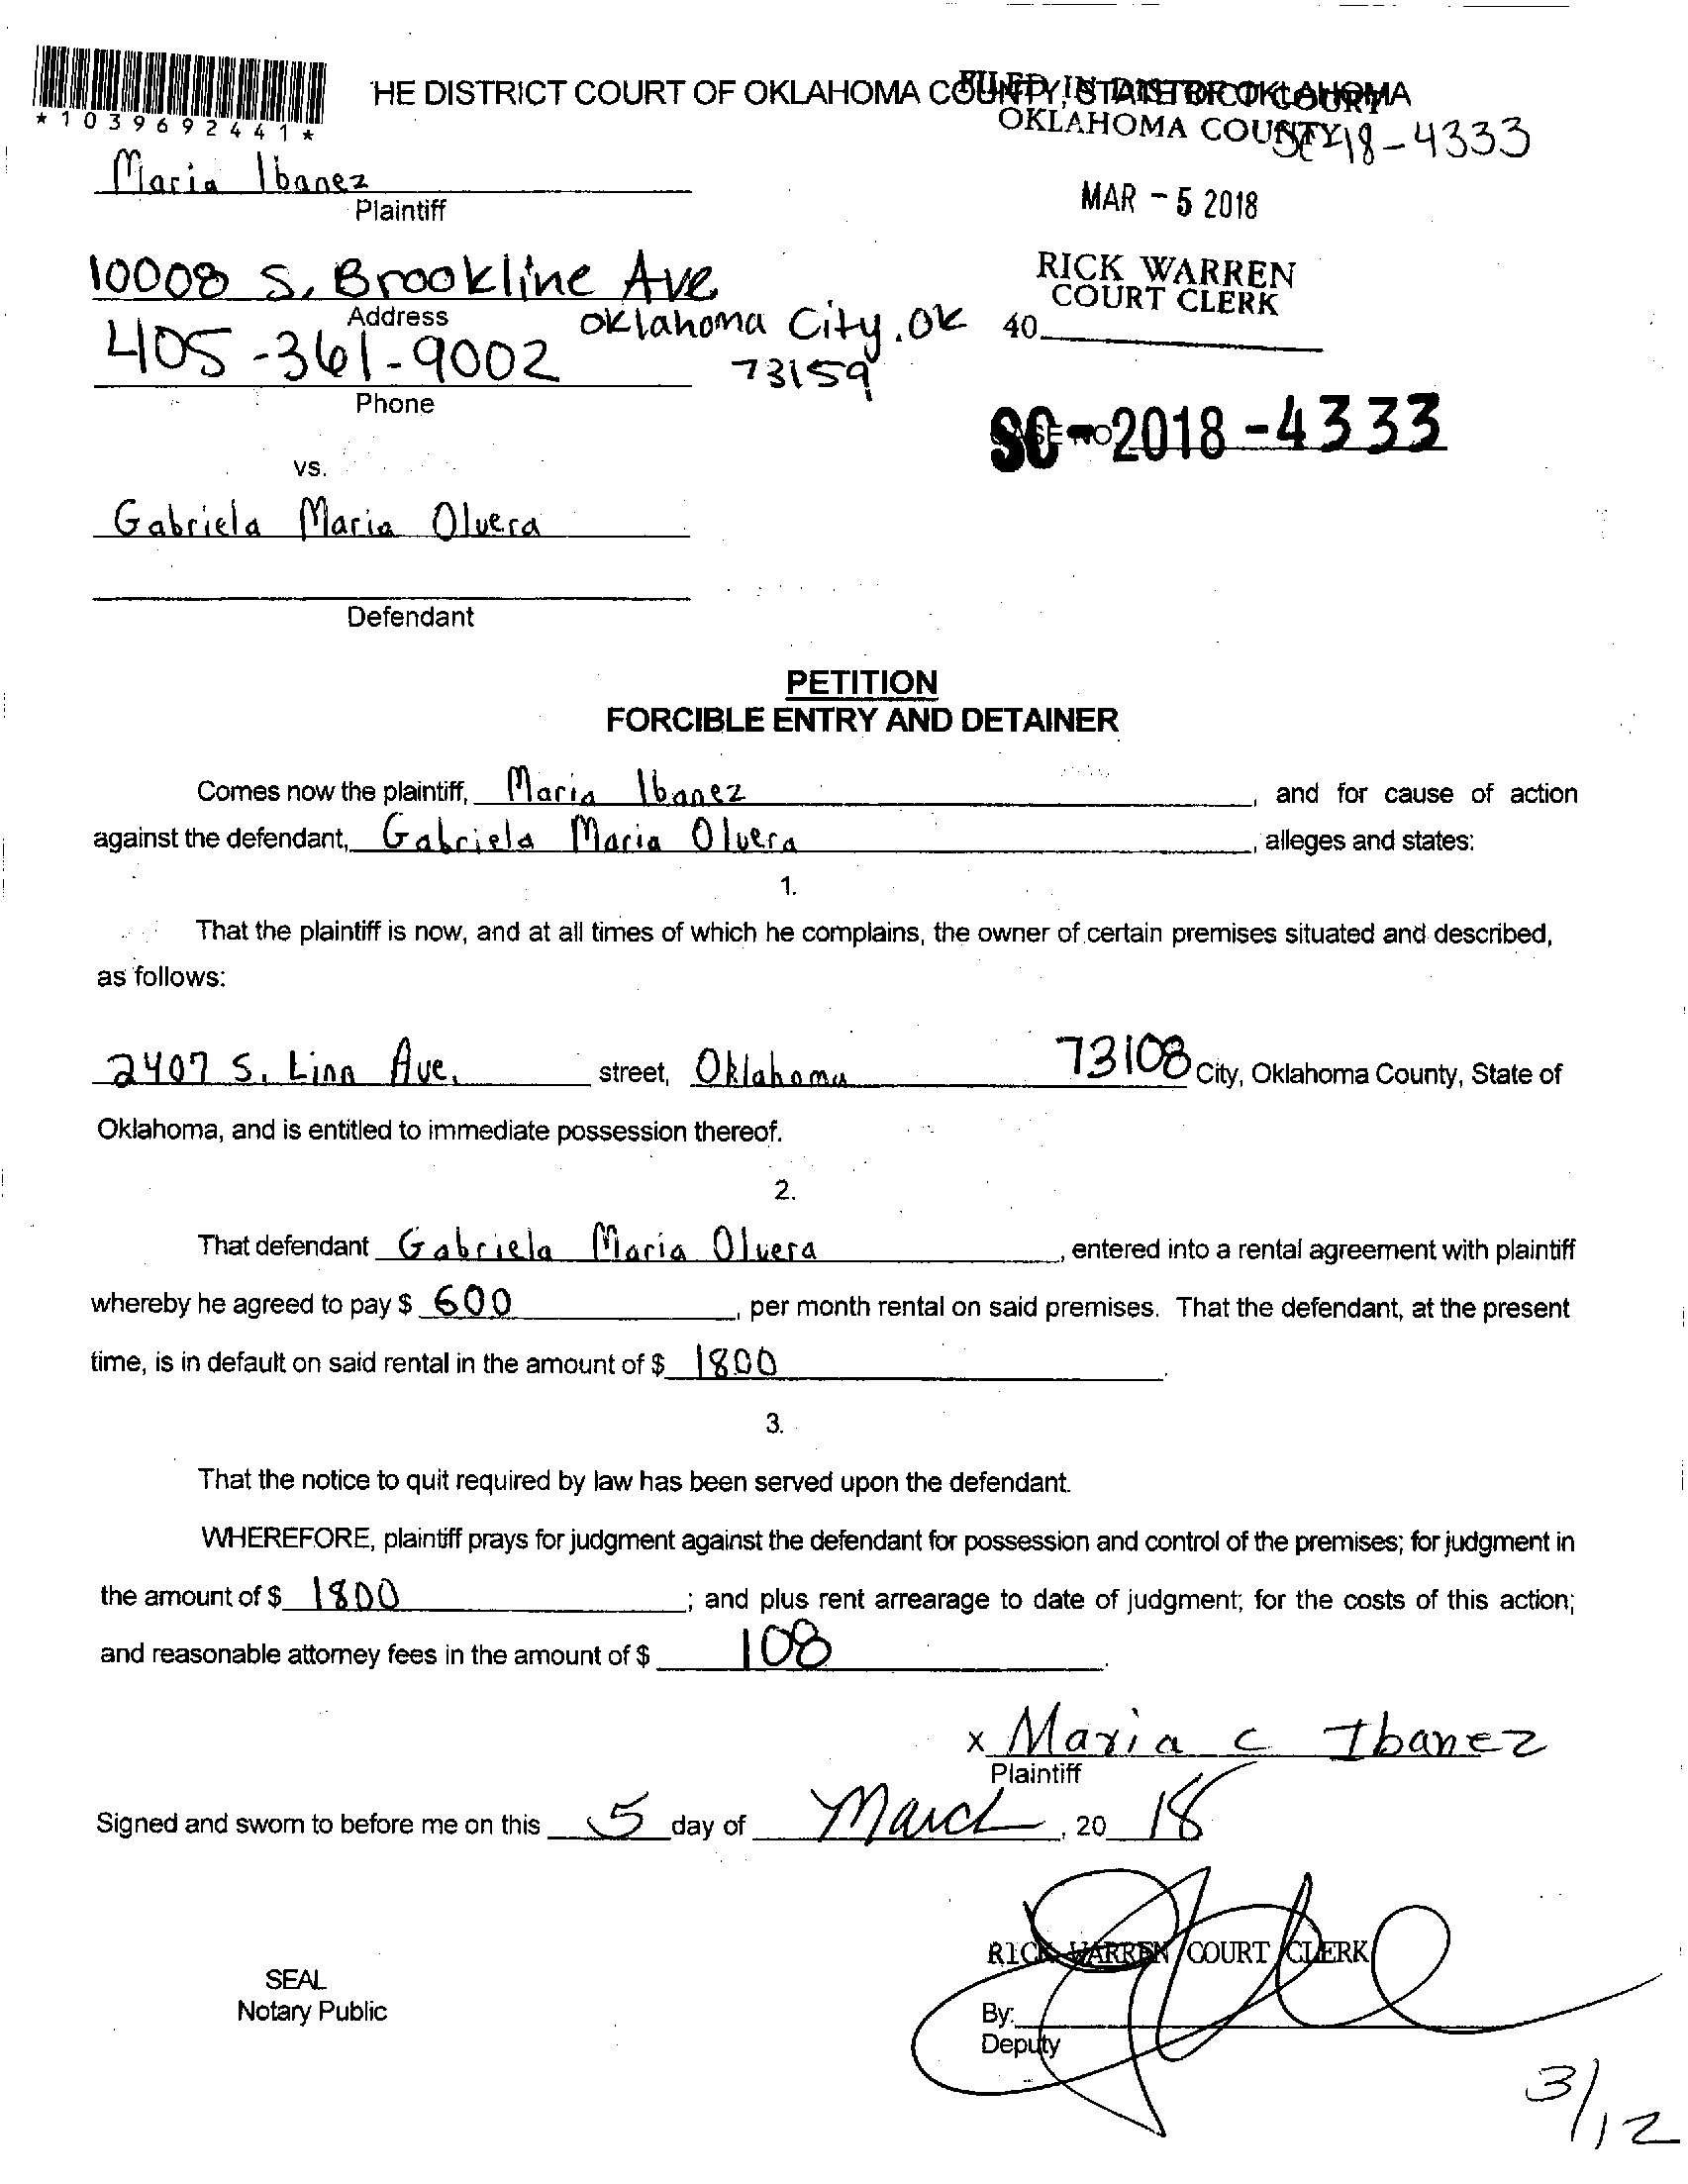 *1039692441*
HE DISTRICT COURT OF OKLAHOMA COUNTY, STATE OF OKLAHOMA
FILED IN DISTRICT COURT
OKLAHOMA COUNTY
SC-18-4333
Maria Ibanez
Plaintiff
MAR - 5 2018
10008 S. Brookline Ave
Address
RICK WARREN
COURT CLERK
Oklahoma City, OK
40
405-361-9002
73159
Phone
CASE NO
SC-2018-4333
vs.
Gabriela Maria Olvera
Defendant
PETITION
FORCIBLE ENTRY AND DETAINER
Comes now the plaintiff, Maria Ibanez, and for cause of action
against the defendant, Gabriela Maria Olvera, alleges and states:
1.
That the plaintiff is now, and at all times of which he complains, the owner of certain premises situated and described,
as follows:
2407 S. Linn Ave. street, Oklahoma 73108 City, Oklahoma County, State of
Oklahoma, and is entitled to immediate possession thereof.
2.
That defendant Gabriela Maria Olvera, entered into a rental agreement with plaintiff
whereby he agreed to pay $ 600, per month rental on said premises. That the defendant, at the present
time, is in default on said rental in the amount of $ 1800.
3.
That the notice to quit required by law has been served upon the defendant.
WHEREFORE, plaintiff prays for judgment against the defendant for possession and control of the premises; for judgment in
the amount of $ 1800; and plus rent arrearage to date of judgment; for the costs of this action;
and reasonable attorney fees in the amount of $ 108.
x Maria C Ibanez
Plaintiff
Signed and sworn to before me on this 5 day of March, 20 18
RICK WARREN COURT CLERK
SEAL
Notary Public
By:
Deputy
3/12